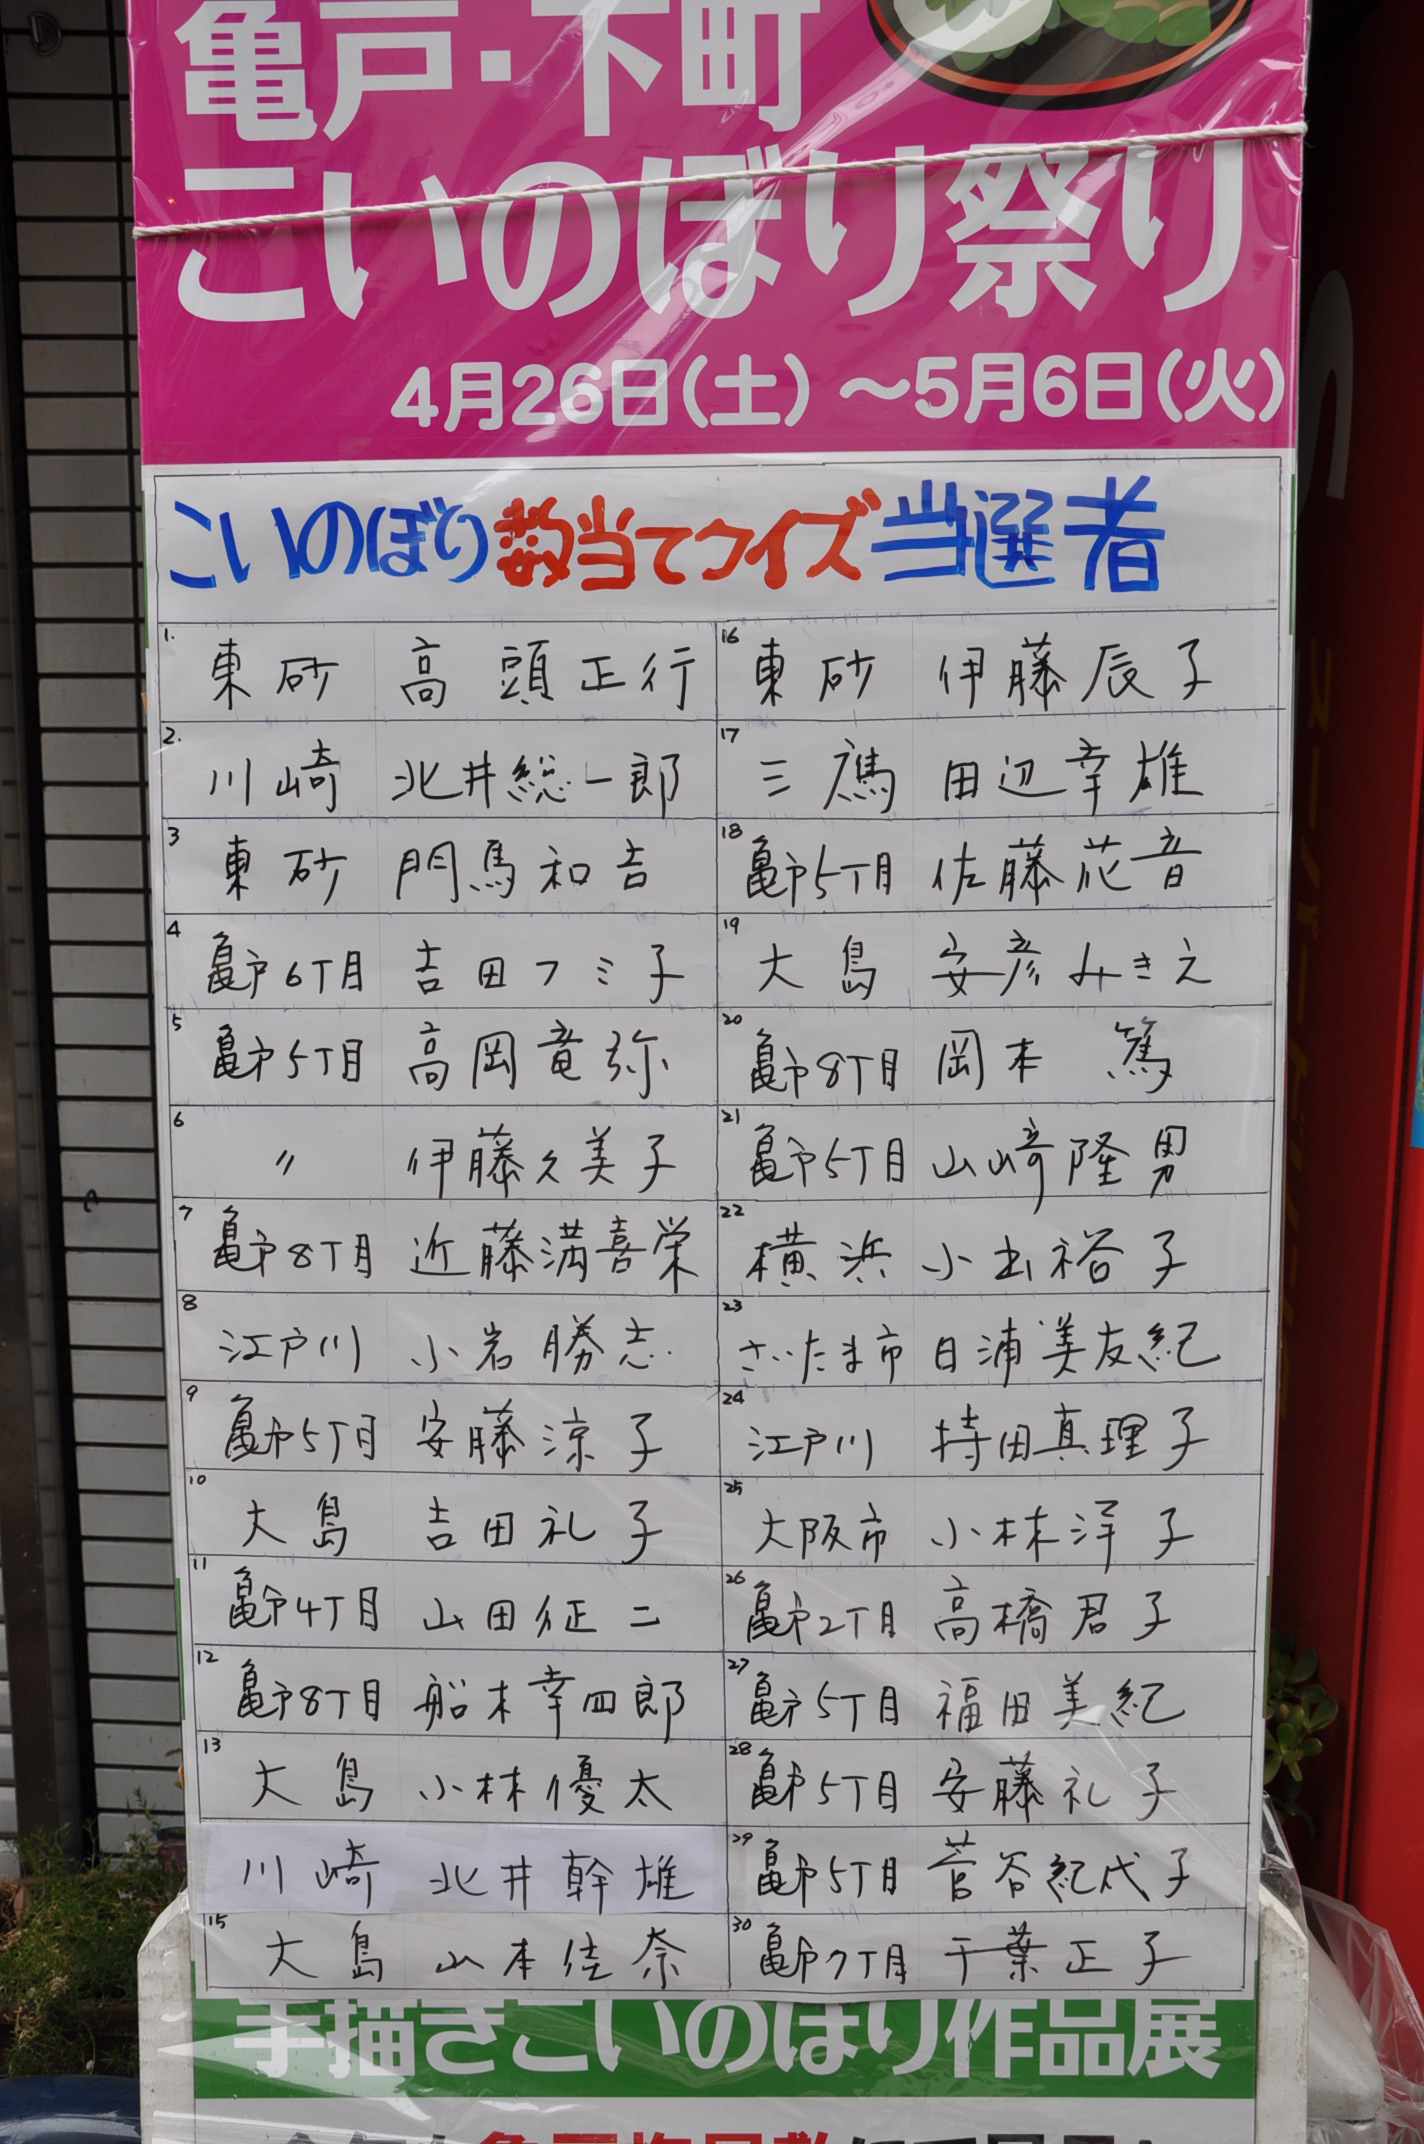 亀戸・下町
こいのぼり祭り
4月26日(土)～5月6日(火)
こいのぼり数当てクイズ当選者
1. 東砂 高頭正行
2. 川崎 北井総一郎
3 東砂 門馬和吉
4 亀戸6丁目 吉田フミ子
5 亀戸5丁目 高岡竜弥
6 〃 伊藤久美子
7 亀戸8丁目 近藤満喜栄
8 江戸川 小岩勝志
9 亀戸5丁目 安藤涼子
10 大島 吉田礼子
11 亀戸4丁目 山田征二
12 亀戸8丁目 船木幸四郎
13 大島 小林優太
川崎 北井幹雄
15 大島 山本佳奈
16 東砂 伊藤辰子
17 三鷹 田辺幸雄
18 亀戸5丁目 佐藤花音
19 大島 安彦みきえ
20 亀戸8丁目 岡本 篤
21 亀戸5丁目 山崎隆男
22 横浜 小出裕子
23 さいたま市 日浦美友紀
24 江戸川 持田真理子
25 大阪市 小林洋子
26 亀戸2丁目 高橋君子
27 亀戸5丁目 福田美紀
28 亀戸5丁目 安藤礼子
29 亀戸5丁目 菅谷紀代子
30 亀戸7丁目 千葉正子
手描きこいのぼり作品展